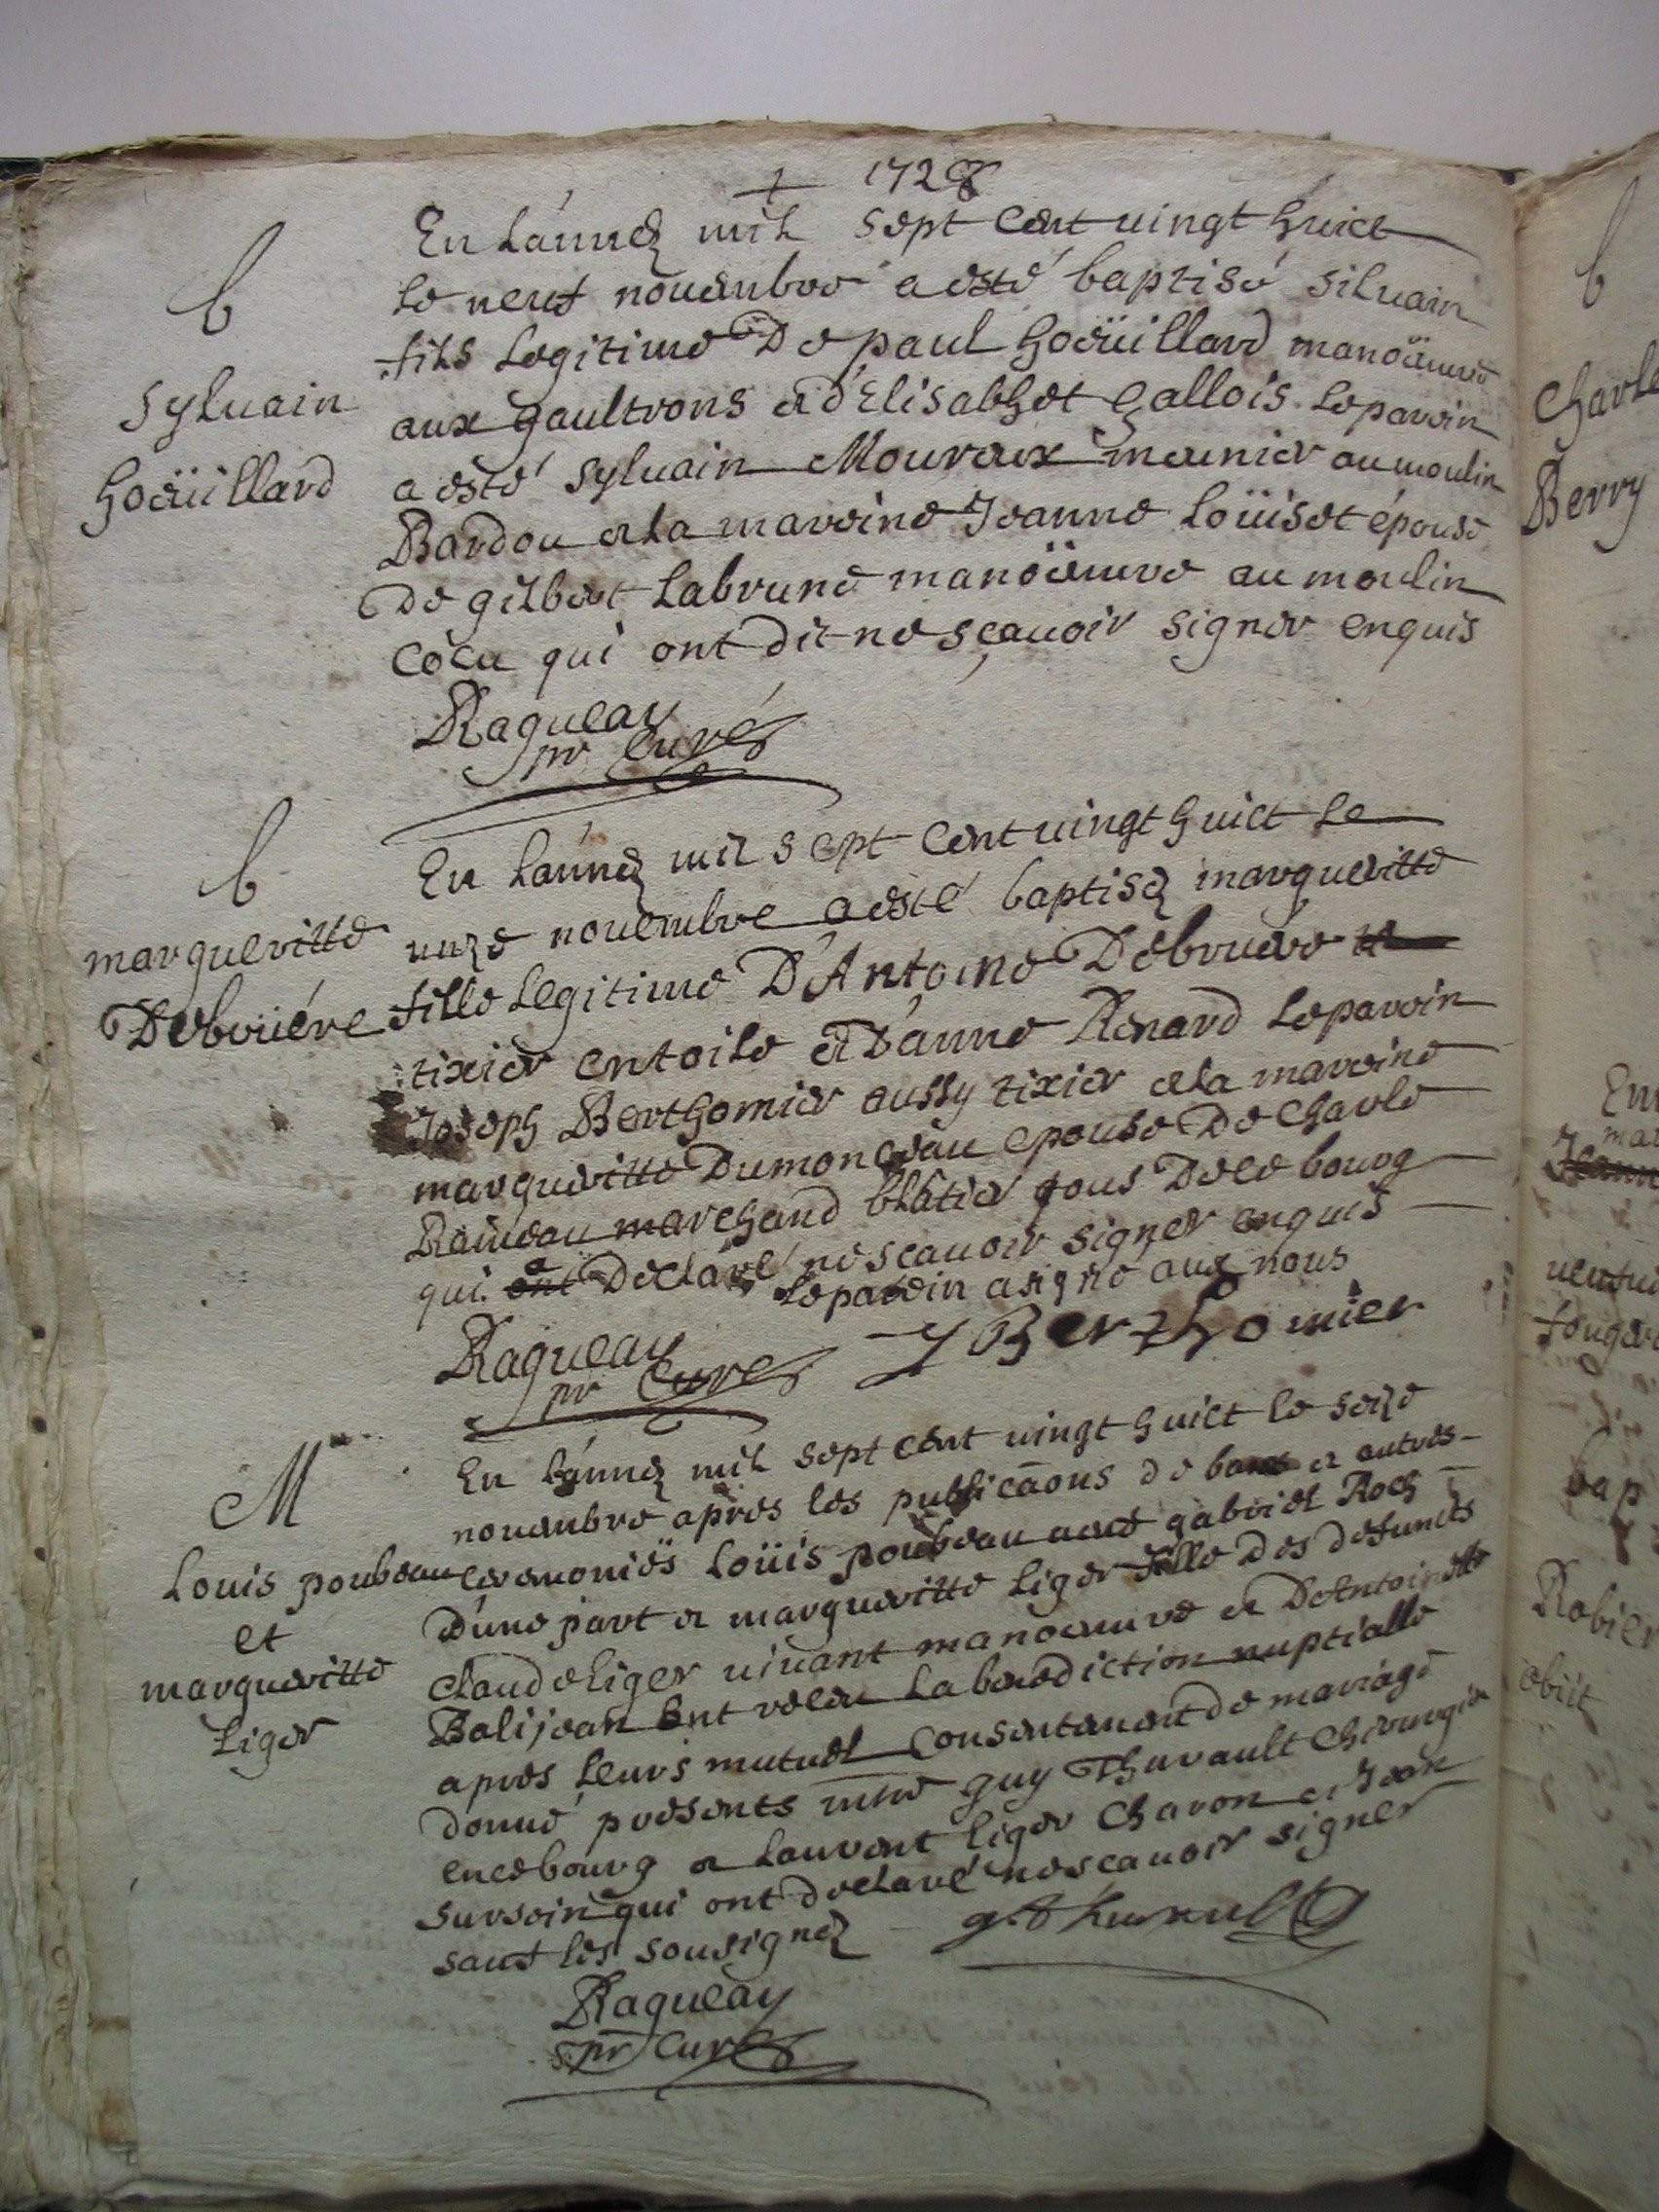 1728
En L'année mil sept cent uingt huict
b
le neuf nouembre a esté baptisé siluain
fils Legitime De paul Goëuillard manoëuure
Syluain
aux gaultrons et d'Elisabhet Gallois. Le parein
Goëuillard
a esté syluain Moureux meunier au moulin
Bardou et la mareine Jeanne Loüiset épouse
De gilbert Labrune manoëuure au moulin
cocu qui ont dit ne sçauoir signer enquis
Ragueau
pr Curé
b
En L'année mil sept cent uingt huict Le
margueritte
unze nouembre a esté baptisée margueritte
Debruére
fille Legitime D'Antoine Debruére
tixier en toile et D'anne Renard Le parein
Joseph Berthomier aussy tixier et la mareine
margueritte Dumonceau epouse De Charle
Raimeau marchand blâtier tous De ce bourg
qui a Declaré ne scauoir signer enquis
Le parein a signé auec nous
Ragueau
pr Curé
J Berthomier
M
En L'année mil sept cent uingt huict le seize
nouembre apres les publicâons de bans et autres
Louis poubeau
ceremoniës Loüis poubeau ueuf gabriel Roch
et
D'une part et margueritte Liger fille Des defuncts
margueritte
Claude Liger uiuant manoeuure et D'Antoinette
Liger
Balijean ont receu La benediction nuptialle
apres Leurs mutuel consentement de mariage
donné presents mtre guy Thurault Chirurgien
en ce bourg et Laurent Liger Charon et Jean
sursoin qui ont declaré ne scauoir signer
sauf les sousignez
g. Thurault
Ragueau
pr Curé
b
Charle
Berry
bap
Robier
obiit